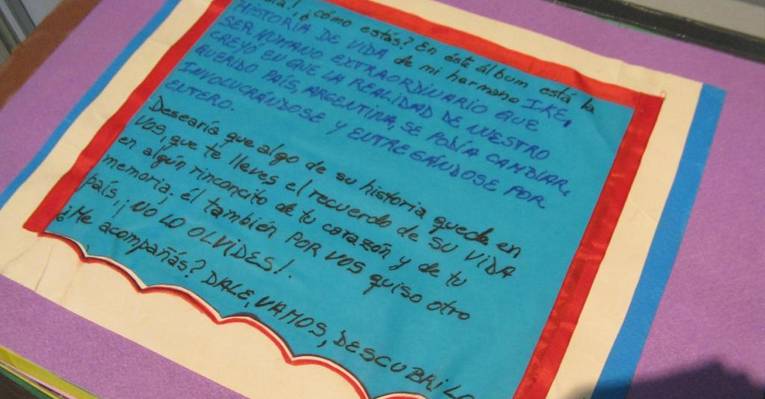 ¿cómo estás? En este álbum está la
HISTORIA DE VIDA de mi hermano IKE,
SER HUMANO EXTRAORDINARIO QUE
CREYÓ EN QUE LA REALIDAD DE NUESTRO
QUERIDO PAÍS, ARGENTINA, SE PODÍA CAMBIAR,
INVOLUCRÁNDOSE Y ENTREGÁNDOSE POR
ENTERO.
Desearía que algo de su historia quede en
VOS, que te lleves el recuerdo de SU VIDA
en algún rinconcito de tu corazón y de tu
memoria; él también POR VOS quiso otro
País, ¡NO LO OLVIDES!
¿Me acompañás? DALE, VAMOS, DESCUBRILO